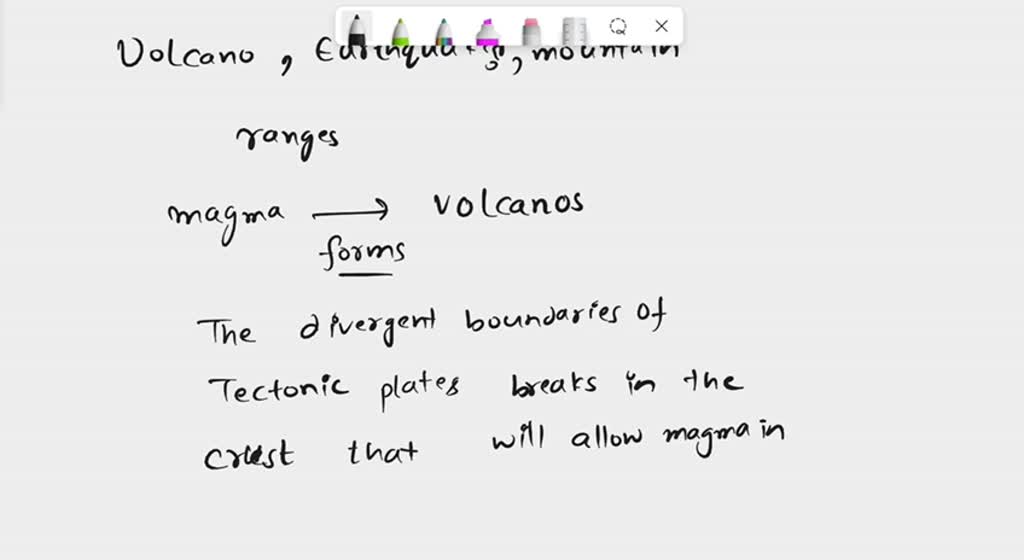 Volcano, Earthquakes, mountain
ranges
magma → volcanos
forms
The divergent boundaries of
Tectonic plates breaks in the
crust that will allow magma in